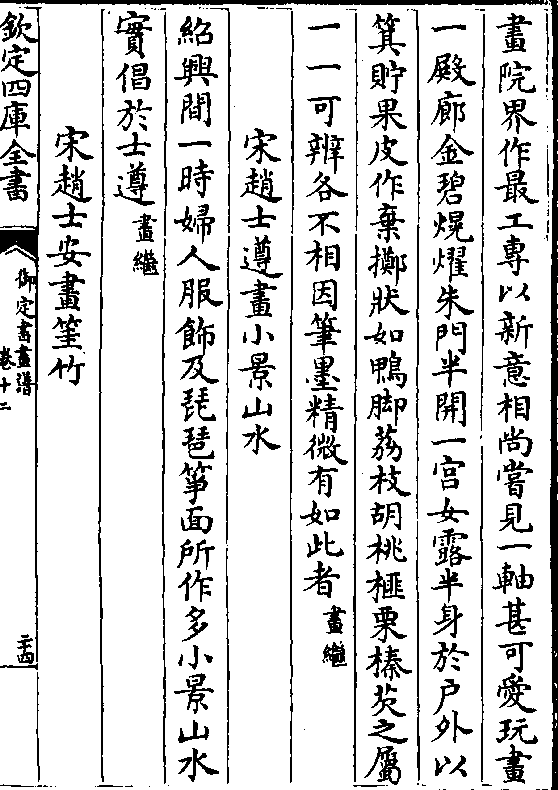 畫院界作最工專以新意相尚嘗見一軸甚可愛玩畫
一殿廊金碧熀燿朱門半開一宫女露半身於戶外以
箕貯果皮作棄擲狀如鴨脚荔枝胡桃榧栗榛芡之屬
一一可辨各不相因筆墨精微有如此者畫繼
宋趙士遵畫小景山水
紹興間一時婦人服飾及琵琶筝面所作多小景山水
實倡於士遵畫繼
宋趙士安畫筀竹
欽定四庫全書
御定書畫譜
卷十二
二十四